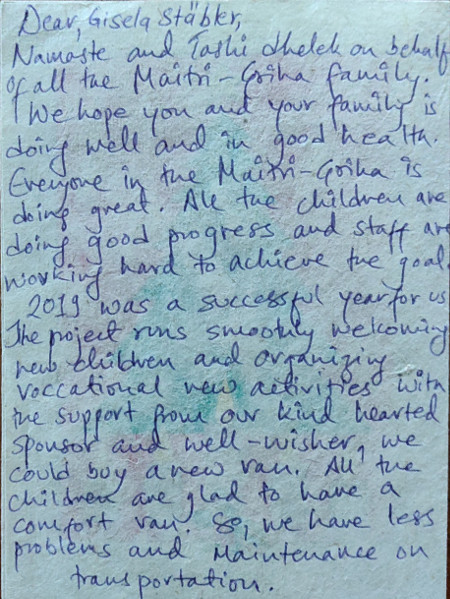 Dear, Gisela Stäbler,
Namaste and Tashi dhelek on behalf
of all the Maitri-Griha family.
We hope you and your family is
doing well and in good health.
Everyone in the Maitri-Griha is
doing great. All the children are
doing good progress and staff are
working hard to achieve the goal.
2019 was a successful year for us
The project runs smoothly welcoming
new children and organizing
voccational new activities with
the support from our kind hearted
sponsor and well-wisher, we
could buy a new van. All the
children are glad to have a
comfort van. So, we have less
problems and maintenance on
transportation.